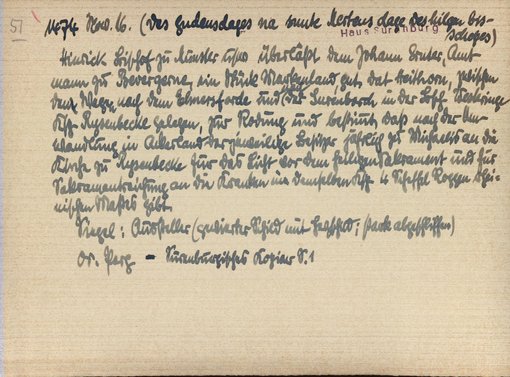 51
1474 Nov. 16. (des gudensdages na sunte Mertens dage des hilgen bis-
schopes)
Haus Surenburg
Hinrick Bischof zu Munster usw überläßt dem Johann Ernter, Amt-
mann zu Bevergerne, ein Stück Markenland, gnt. dat Heithorn, zwischen
dem Wege nach dem Elmersforde und der Surenborch in der Bsch.
Ksp. Rysenbecke gelegen, zur Rodung und bestimmt daß nach der Um-
wandlung in Ackerland der jeweilige Besitzer jährlich zu Michaelis an die
Kirche zu Rysenbecke für das Licht vor dem heiligen Sakrament und für
Sakramentreichung an die Kranken im demselben Ksp. 4 Scheffel Roggen Rhei-
nischen Maßes gibt.
Siegel: Aussteller (quadrierter Schild mit Herzschild; stark abgeschliffen)
Or. Perg - Surenburgisches Kopiar S. 1